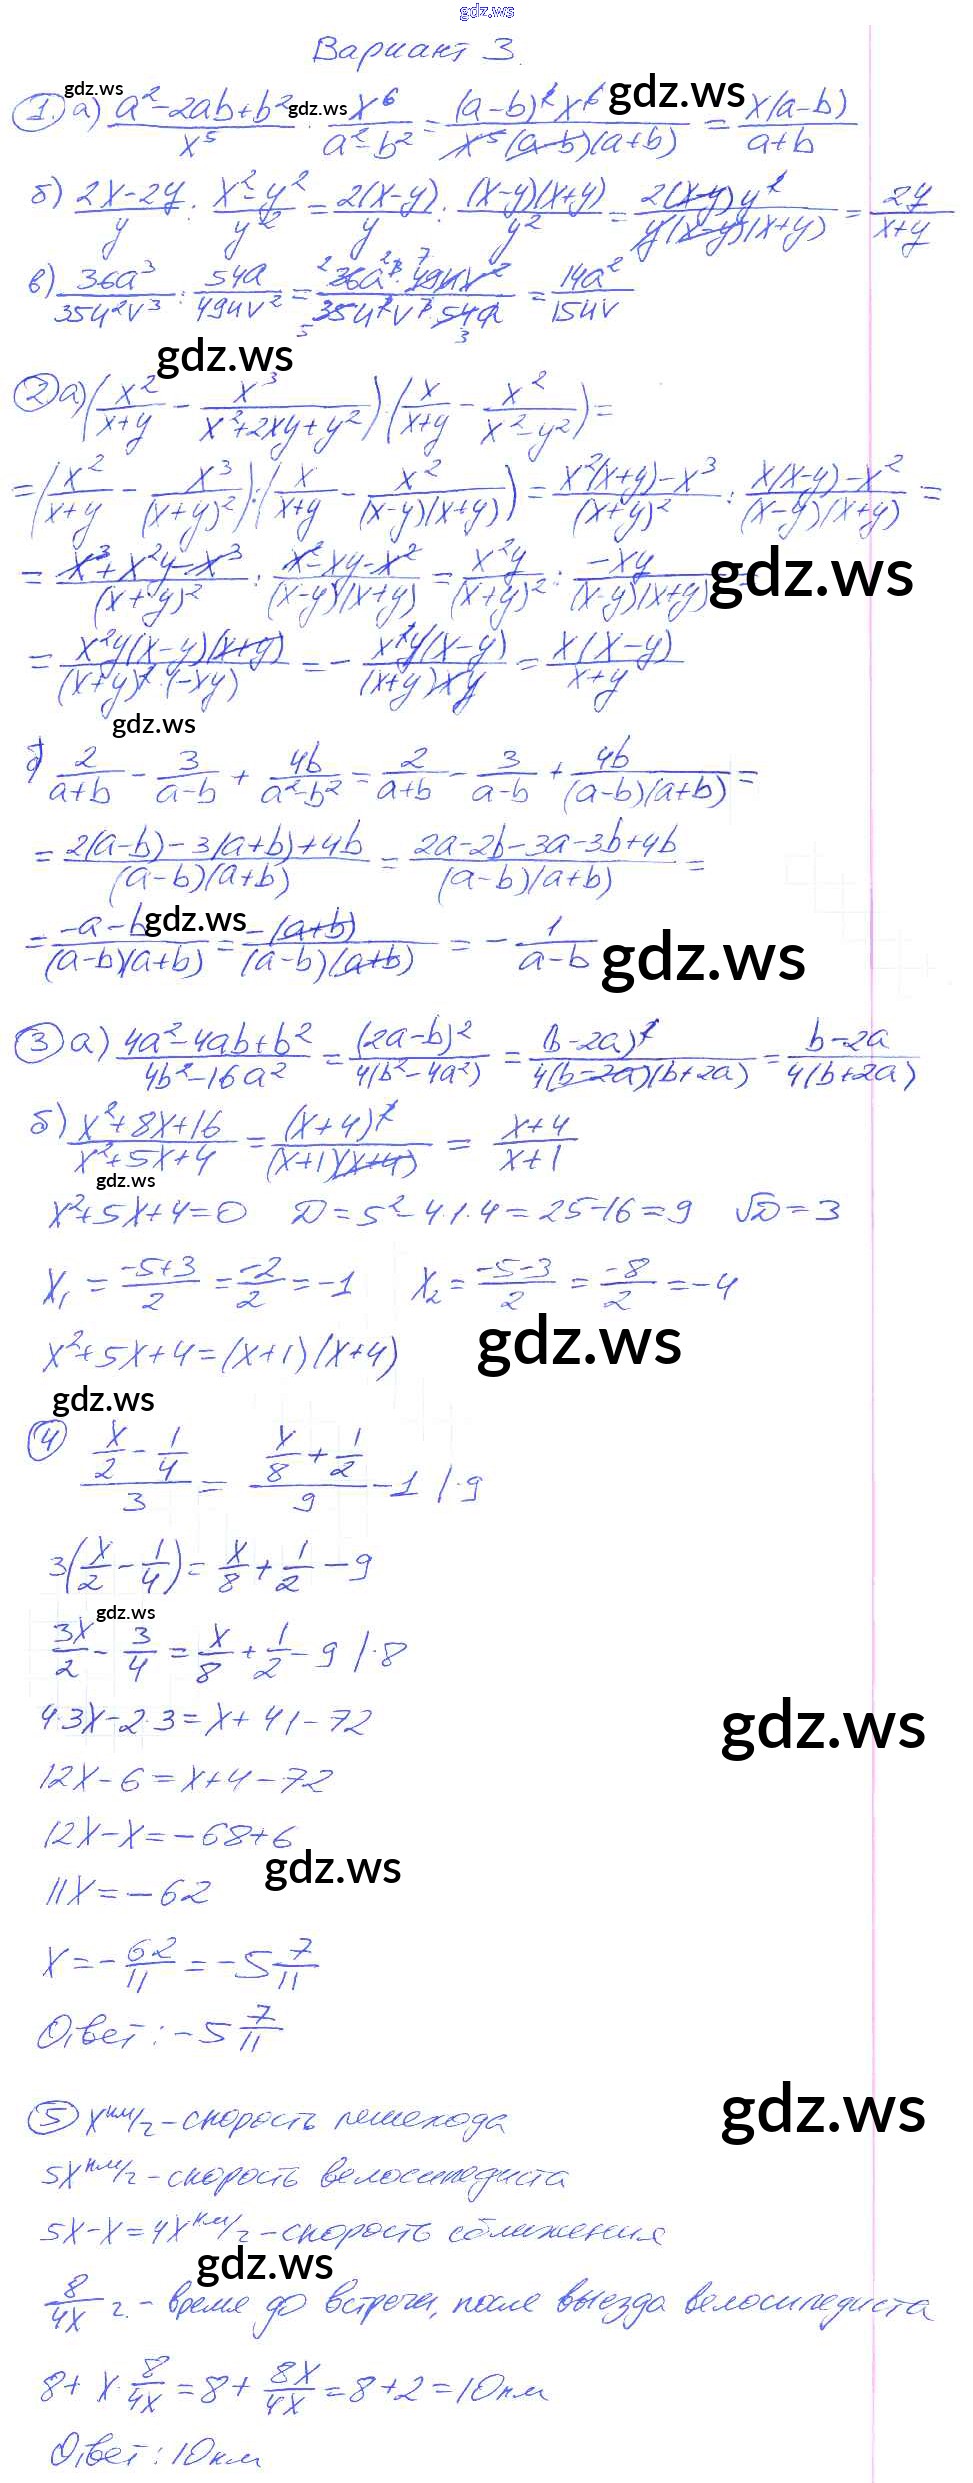 gdz.ws
Вариант 3.
gdz.ws gdz.ws gdz.ws
1. а) (a²-2ab+b²)/x⁵ · x⁶/(a²-b²) = ((a-b)²x⁶)/(x⁵(a-b)(a+b)) = x(a-b)/(a+b)
б) (2x-2y)/y : (x²-y²)/y² = 2(x-y)/y : (x-y)(x+y)/y² = 2(x-y)y²/(y(x-y)(x+y)) = 2y/(x+y)
в) 36a³/35u²v³ : 54a/49uv² = (36a³·49uv²)/(35u²v³·54a) = 14a²/15uv
gdz.ws
2 а) (x²/(x+y) - x³/(x²+2xy+y²)) : (x/(x+y) - x²/(x²-y²)) =
= (x²/(x+y) - x³/(x+y)²) : (x/(x+y) - x²/((x-y)(x+y))) = (x²(x+y)-x³)/(x+y)² : (x(x-y)-x²)/((x-y)(x+y)) =
= (x³+x²y-x³)/(x+y)² : (x²-xy-x²)/((x-y)(x+y)) = x²y/(x+y)² : -xy/((x-y)(x+y)) gdz.ws
= x²y(x-y)(x+y)/((x+y)²·(-xy)) = - x²y(x-y)/((x+y)xy) = x(x-y)/(x+y)
gdz.ws
б) 2/(a+b) - 3/(a-b) + 4b/(a²-b²) = 2/(a+b) - 3/(a-b) + 4b/((a-b)(a+b)) =
= (2(a-b)-3(a+b)+4b)/((a-b)(a+b)) = (2a-2b-3a-3b+4b)/((a-b)(a+b)) =
= (-a-b)/((a-b)(a+b)) = -(a+b)/((a-b)(a+b)) = - 1/(a-b)
gdz.ws gdz.ws
3 а) (4a²-4ab+b²)/(4b²-16a²) = (2a-b)²/(4(b²-4a²)) = (b-2a)²/(4(b-2a)(b+2a)) = (b-2a)/(4(b+2a))
б) (x²+8x+16)/(x²+5x+4) = (x+4)²/((x+1)(x+4)) = (x+4)/(x+1)
gdz.ws
x²+5x+4=0 D=5²-4·1·4=25-16=9 √D=3
x₁ = (-5+3)/2 = -2/2 = -1 x₂ = (-5-3)/2 = -8/2 = -4
x²+5x+4=(x+1)(x+4) gdz.ws
gdz.ws
4 (x/2 - 1/4)/3 = (x/8 + 1/2)/9 - 1 /·9
3(x/2 - 1/4) = x/8 + 1/2 - 9
gdz.ws
3x/2 - 3/4 = x/8 + 1/2 - 9 /·8
4·3x-2·3=x+41-72
gdz.ws
12x-6=x+4-72
12x-x=-68+6
gdz.ws
11x=-62
x=-62/11=-5 7/11
Ответ: -5 7/11
gdz.ws
5 x км/г - скорость пешехода
5x км/г - скорость велосипедиста
5x-x=4x км/г - скорость сближения
gdz.ws
8/4x г. - время до встречи, после выезда велосипедиста
8+ x·8/4x = 8+ 8x/4x = 8+2=10км
Ответ: 10км